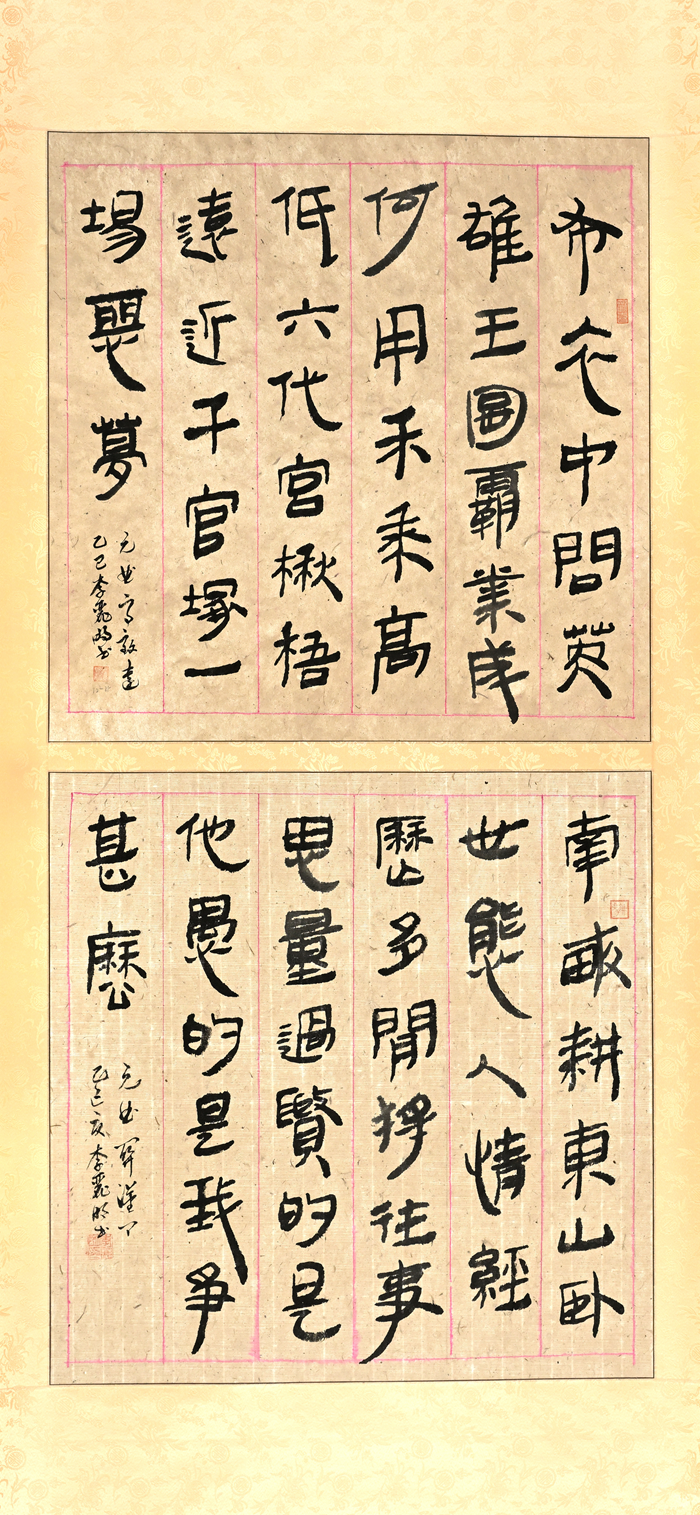 布衣中問英
雄王圖霸業成
何用禾黍高
低六代宮楸梧
遠近千官塚一
場惡夢
元曲馬致遠
乙巳李麗明书
南畝耕東山卧
世態人情經
歷多閒將往事
思量過賢的是
他愚的是我爭
甚麼
元曲關漢卿
乙巳夏李麗明书